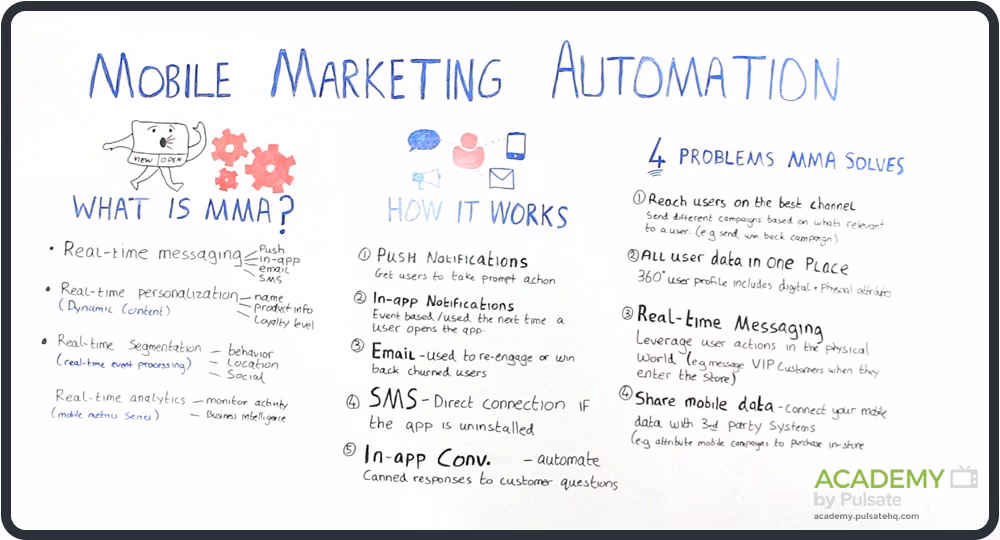 MOBILE MARKETING AUTOMATION
VIEW OPEN
WHAT IS MMA?
• Real-time messaging
Push
in-app
email
SMS
• Real-time personalization
(Dynamic Content)
name
product info
Loyalty level
• Real-time Segmentation
(real-time event processing)
behavior
Location
Social
Real-time analytics
(mobile metrics series)
monitor activity
Business intelligence
HOW IT WORKS
① PUSH NOTIFICATIONS
Get users to take prompt action
② In-app Notifications
Event based/used the next time a
user opens the app.
③ Email - used to re-engage or win
back churned users
④ SMS - Direct connection IF
the app is uninstalled
⑤ In-app Conv. - automate
Canned responses to customer questions
4 PROBLEMS MMA SOLVES
① Reach users on the best channel
Send different campaigns based on whats relevant
to a user. (e.g send win back campaign)
② All user data in One Place
360° user profile includes digital + Physical attributes
③ Real-time Messaging
Leverage user actions in the physical
world (e.g message VIP customers when they
enter the store)
④ Share mobile data - Connect your mobile
data with 3rd party Systems
(e.g attribute mobile campaigns to purchase in-store
ACADEMY
by Pulsate
academy.pulsatehq.com